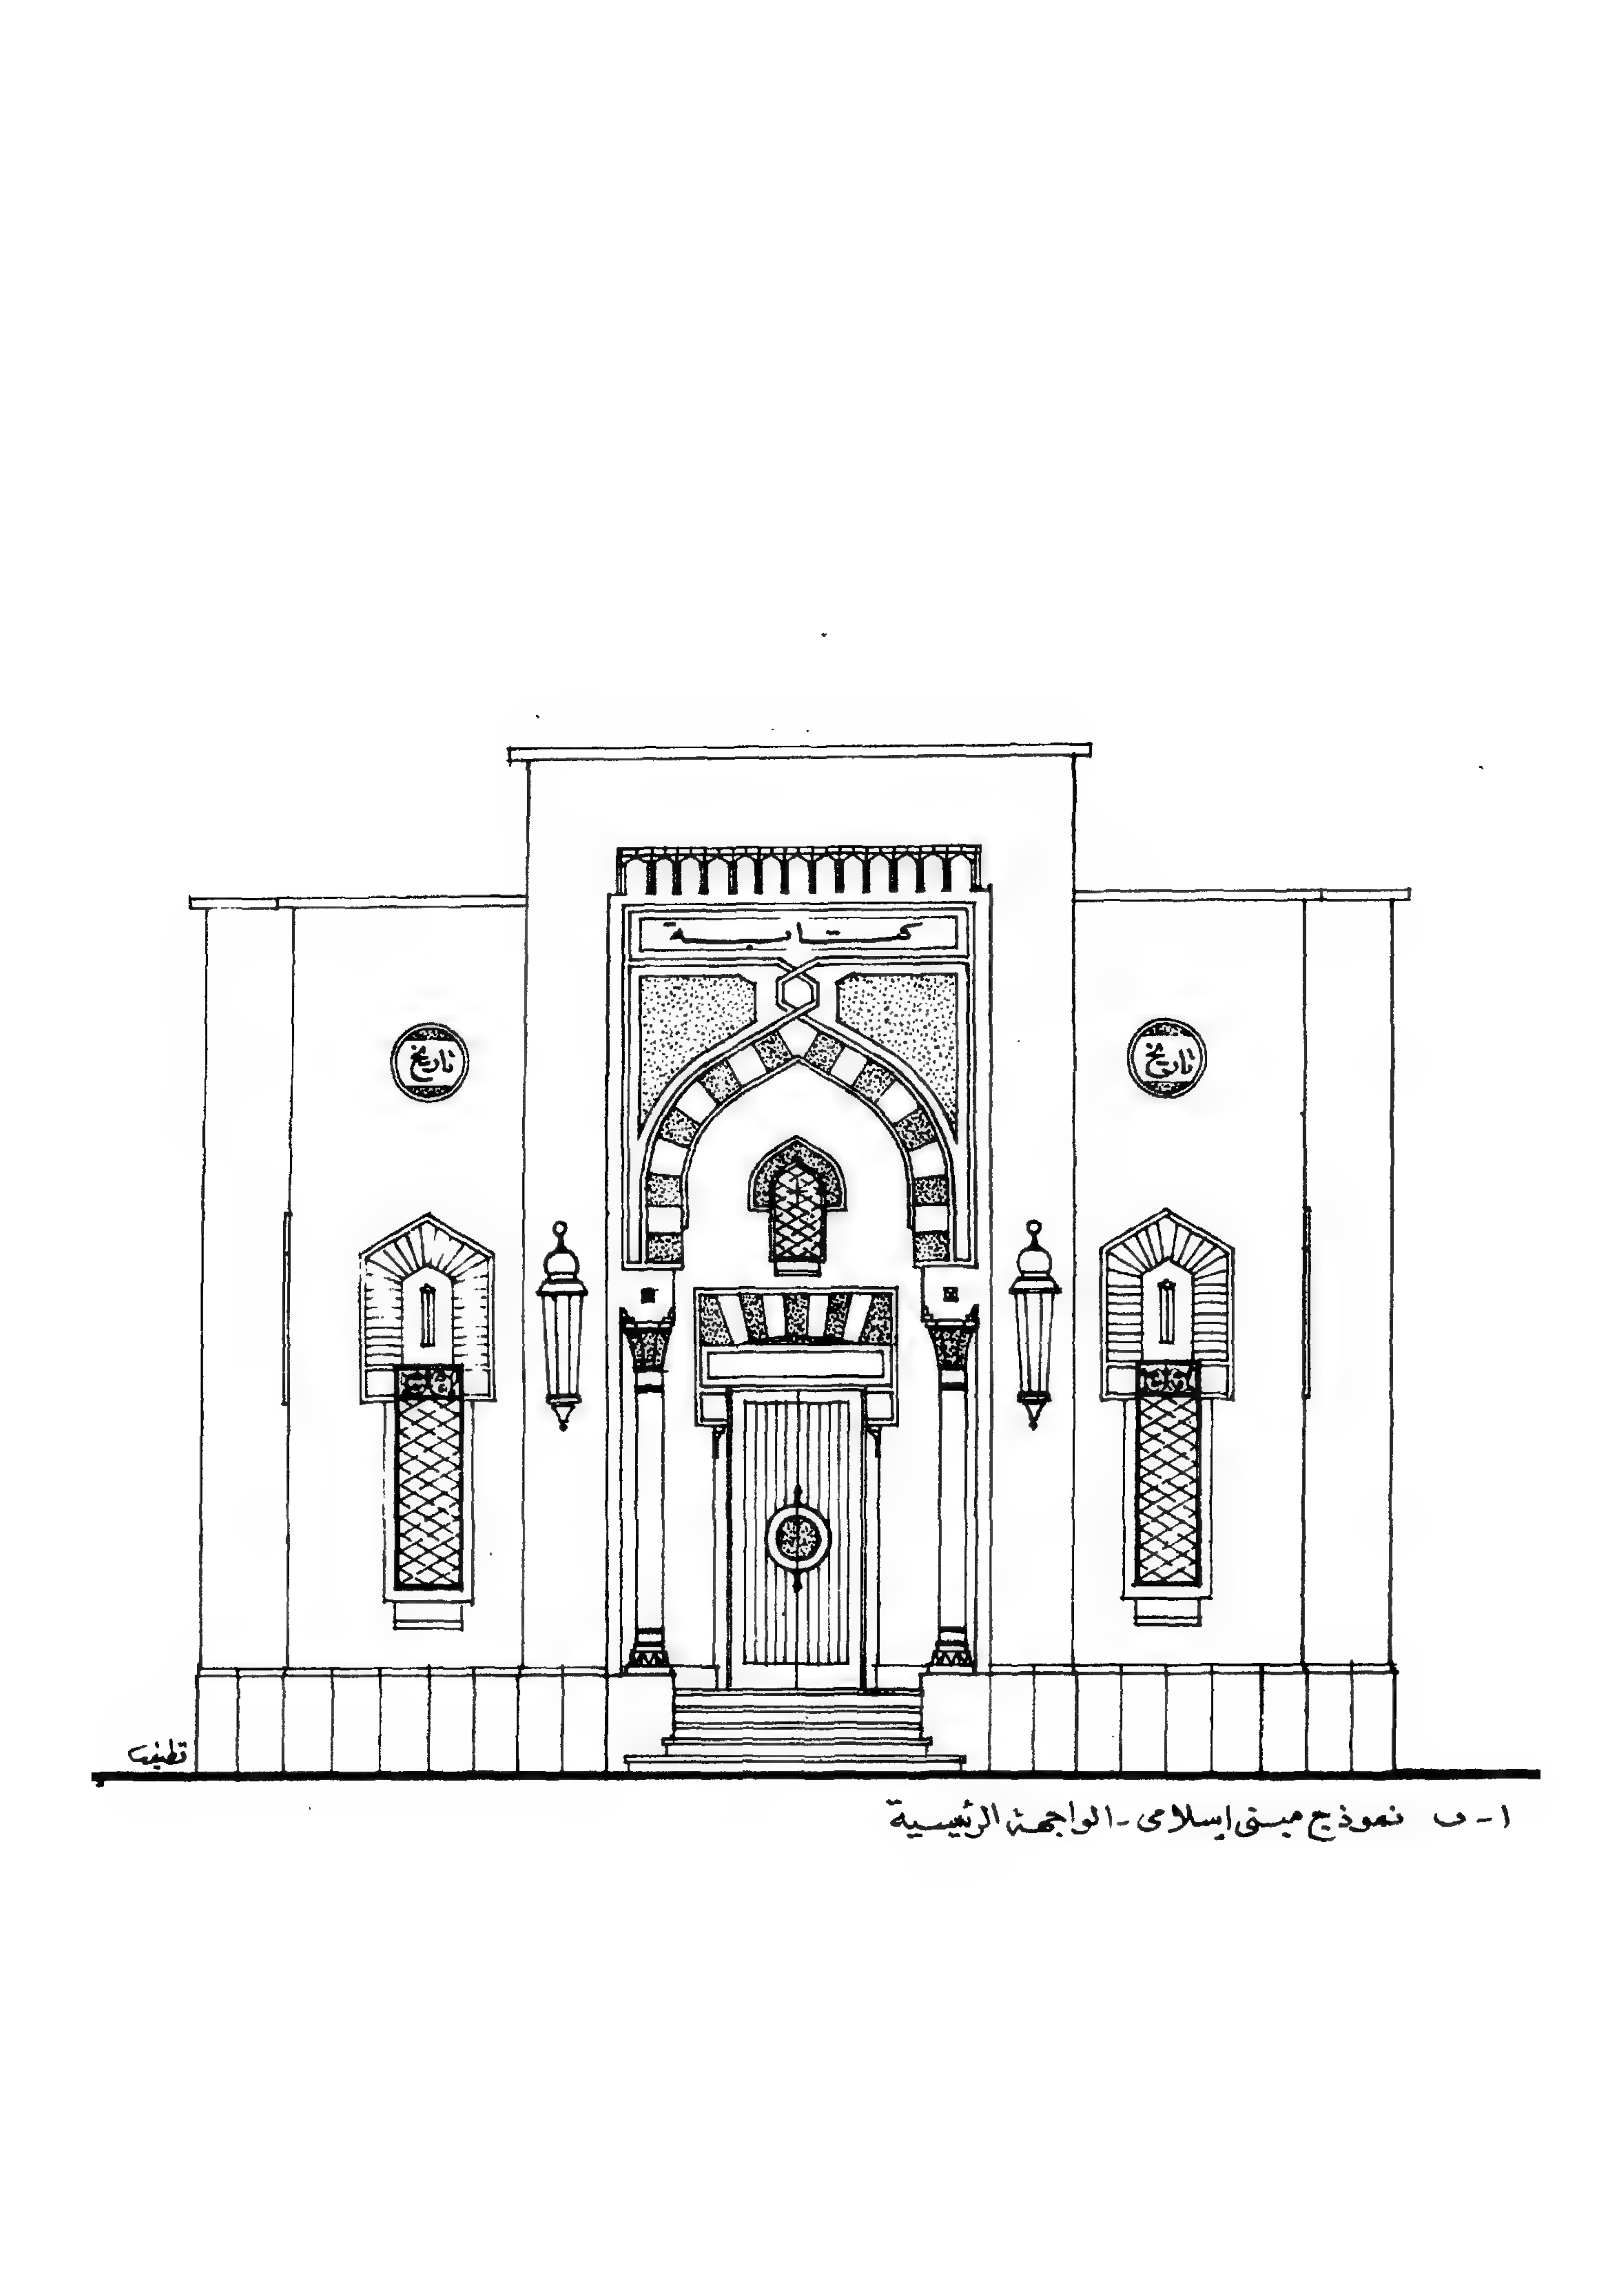 كتابة
تاريخ
تاريخ
١- ب نموذج مبنى إسلامى - الواجهة الرئيسية